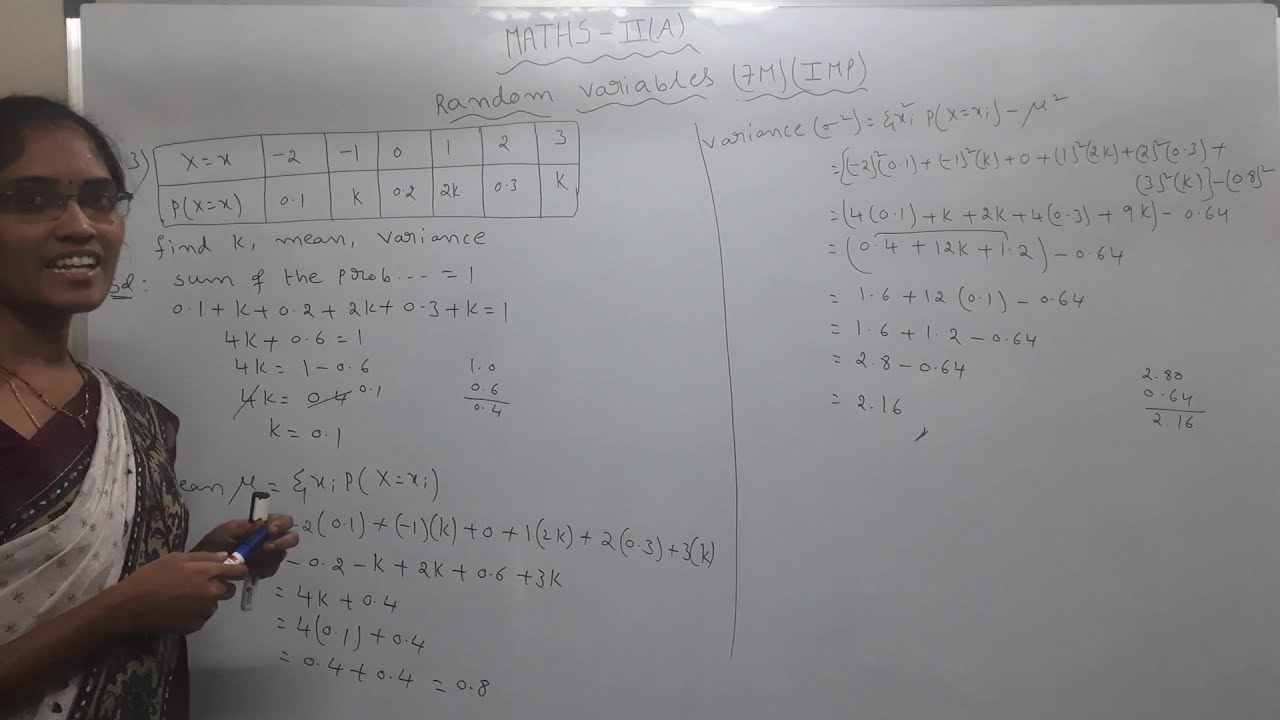 MATHS - II(A)
Random variables (7M)(IMP)
3)
X=x -2 -1 0 1 2 3
P(X=x) 0.1 K 0.2 2K 0.3 K
find K, mean, variance
sum of the prob... = 1
0.1+K+0.2+2K+0.3+K=1
4K+0.6=1
4K=1-0.6
4K=0.4 0.1
K=0.1
1.0
0.6
0.4
μ = Σxi P(X=xi)
-2(0.1)+(-1)(K)+0+1(2K)+2(0.3)+3(K)
-0.2-K+2K+0.6+3K
=4K+0.4
=4(0.1)+0.4
=0.4+0.4=0.8
variance(σ²)=Σxi² P(X=xi)-μ²
=[(-2)²(0.1)+(-1)²(K)+0+(1)²(2K)+(2)²(0.3)+
(3)²(K)]-(0.8)²
=(4(0.1)+K+2K+4(0.3)+9K)-0.64
=(0.4+12K+1.2)-0.64
=1.6+12(0.1)-0.64
=1.6+1.2-0.64
=2.8-0.64
=2.16
2.80
0.64
2.16